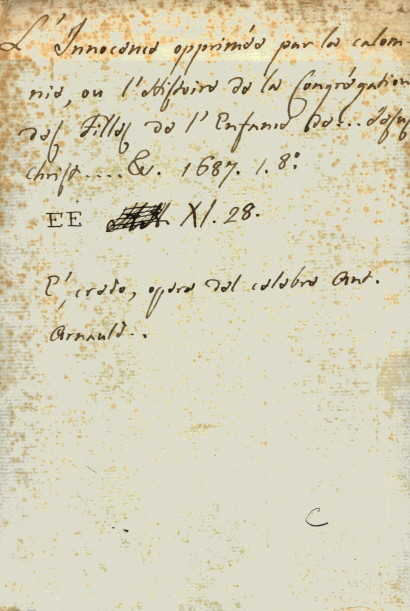 L'Innocence opprimée par la calom-
nie, ou l'Histoire de la Congrégation
des Filles de l'Enfance de... Jesus
christ.... &c. 1687. 1. 8.º
EE XI. 28.
E', credo, opera del celebre Ant.
Arnauld..
C